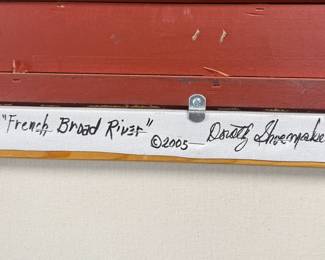 "French Broad River" ©2005 Dorothy Shoemaker